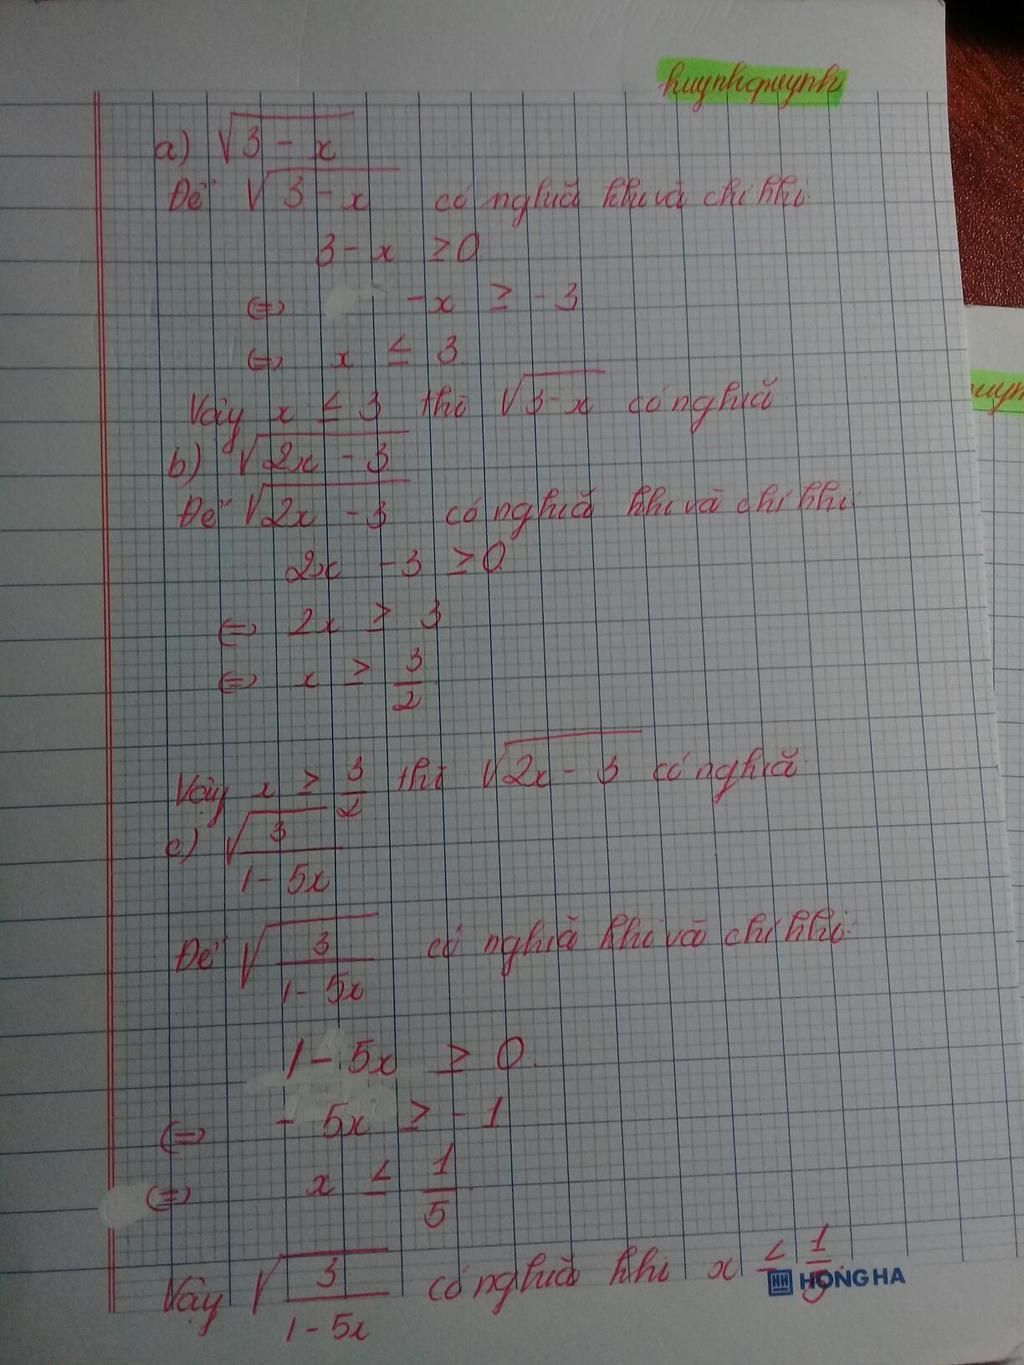 huynhquynh
a) √(3 - x)
Để √(3 - x) có nghĩa khi và chỉ khi:
3 - x ≥ 0
⇔ -x ≥ -3
⇔ x ≤ 3
Vậy x ≤ 3 thì √(3-x) có nghĩa
b) √(2x - 3)
Để √(2x - 3) có nghĩa khi và chỉ khi:
2x - 3 ≥ 0
⇔ 2x ≥ 3
⇔ x ≥ 3/2
Vậy x ≥ 3/2 thì √(2x - 3) có nghĩa
c) √(3/(1 - 5x))
Để √(3/(1 - 5x)) có nghĩa khi và chỉ khi:
1 - 5x ≥ 0.
⇔ - 5x ≥ - 1
⇔ x ≤ 1/5
Vậy √(3/(1 - 5x)) có nghĩa khi x ≤ 1/5
HONG HA